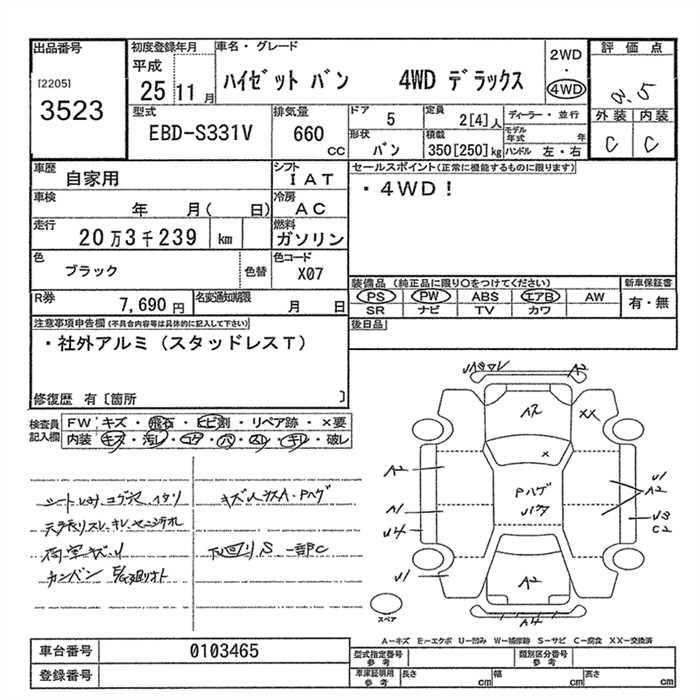 出品番号
[2205]
3523
初度登録年月
平成
25 11 月
車名・グレード
ハイゼット バン 4WD デラックス
2WD
・
4WD
評 価 点
3.5
外装 内装
C C
型式
EBD-S331V
排気量
660
CC
ドア
5
定員
2[4] 人
形状
バン
積載
350[250] kg
ディーラー・並行
モデル年式 年
ハンドル 左・右
車歴
自家用
シフト
IAT
車検
年 月( 日)
冷房
AC
走行
20万3千239 km
燃料
ガソリン
色
ブラック
色替
色コード
X07
R券
7,690 円
名変通知期限
月 日
セールスポイント(正常に機能するものに限ります)
・4WD!
装備品 (純正品に限り○をつけてください)
PS PW ABS エアB AW
SR ナビ TV カワ
新車保証書
有・無
後日品
注意事項申告欄(不具合内容等は具体的に記入して下さい)
・社外アルミ(スタッドレスT)
修復歴 有〔箇所 〕
検査員記入欄
FW キズ・飛石・ヒビ割・リペア跡・×要
内装 キズ・汚レ・コゲ・穴・スレ・キレ・破レ
キズ A・Pハゲ
下回りS 一部C
荷室キズ・U
A2
XX
×
A2
Pハゲ
A1
U4
U1
U1
A2
U3
C2
A2
A4
スペア
A-キズ E-エクボ U-凹み W-補修跡 S-サビ C-腐食 XX-交換済
車台番号
0103465
登録番号
型式指定番号
参考
類別区分番号
参考
車庫証明用
参考
長さ cm
幅 cm
高さ cm